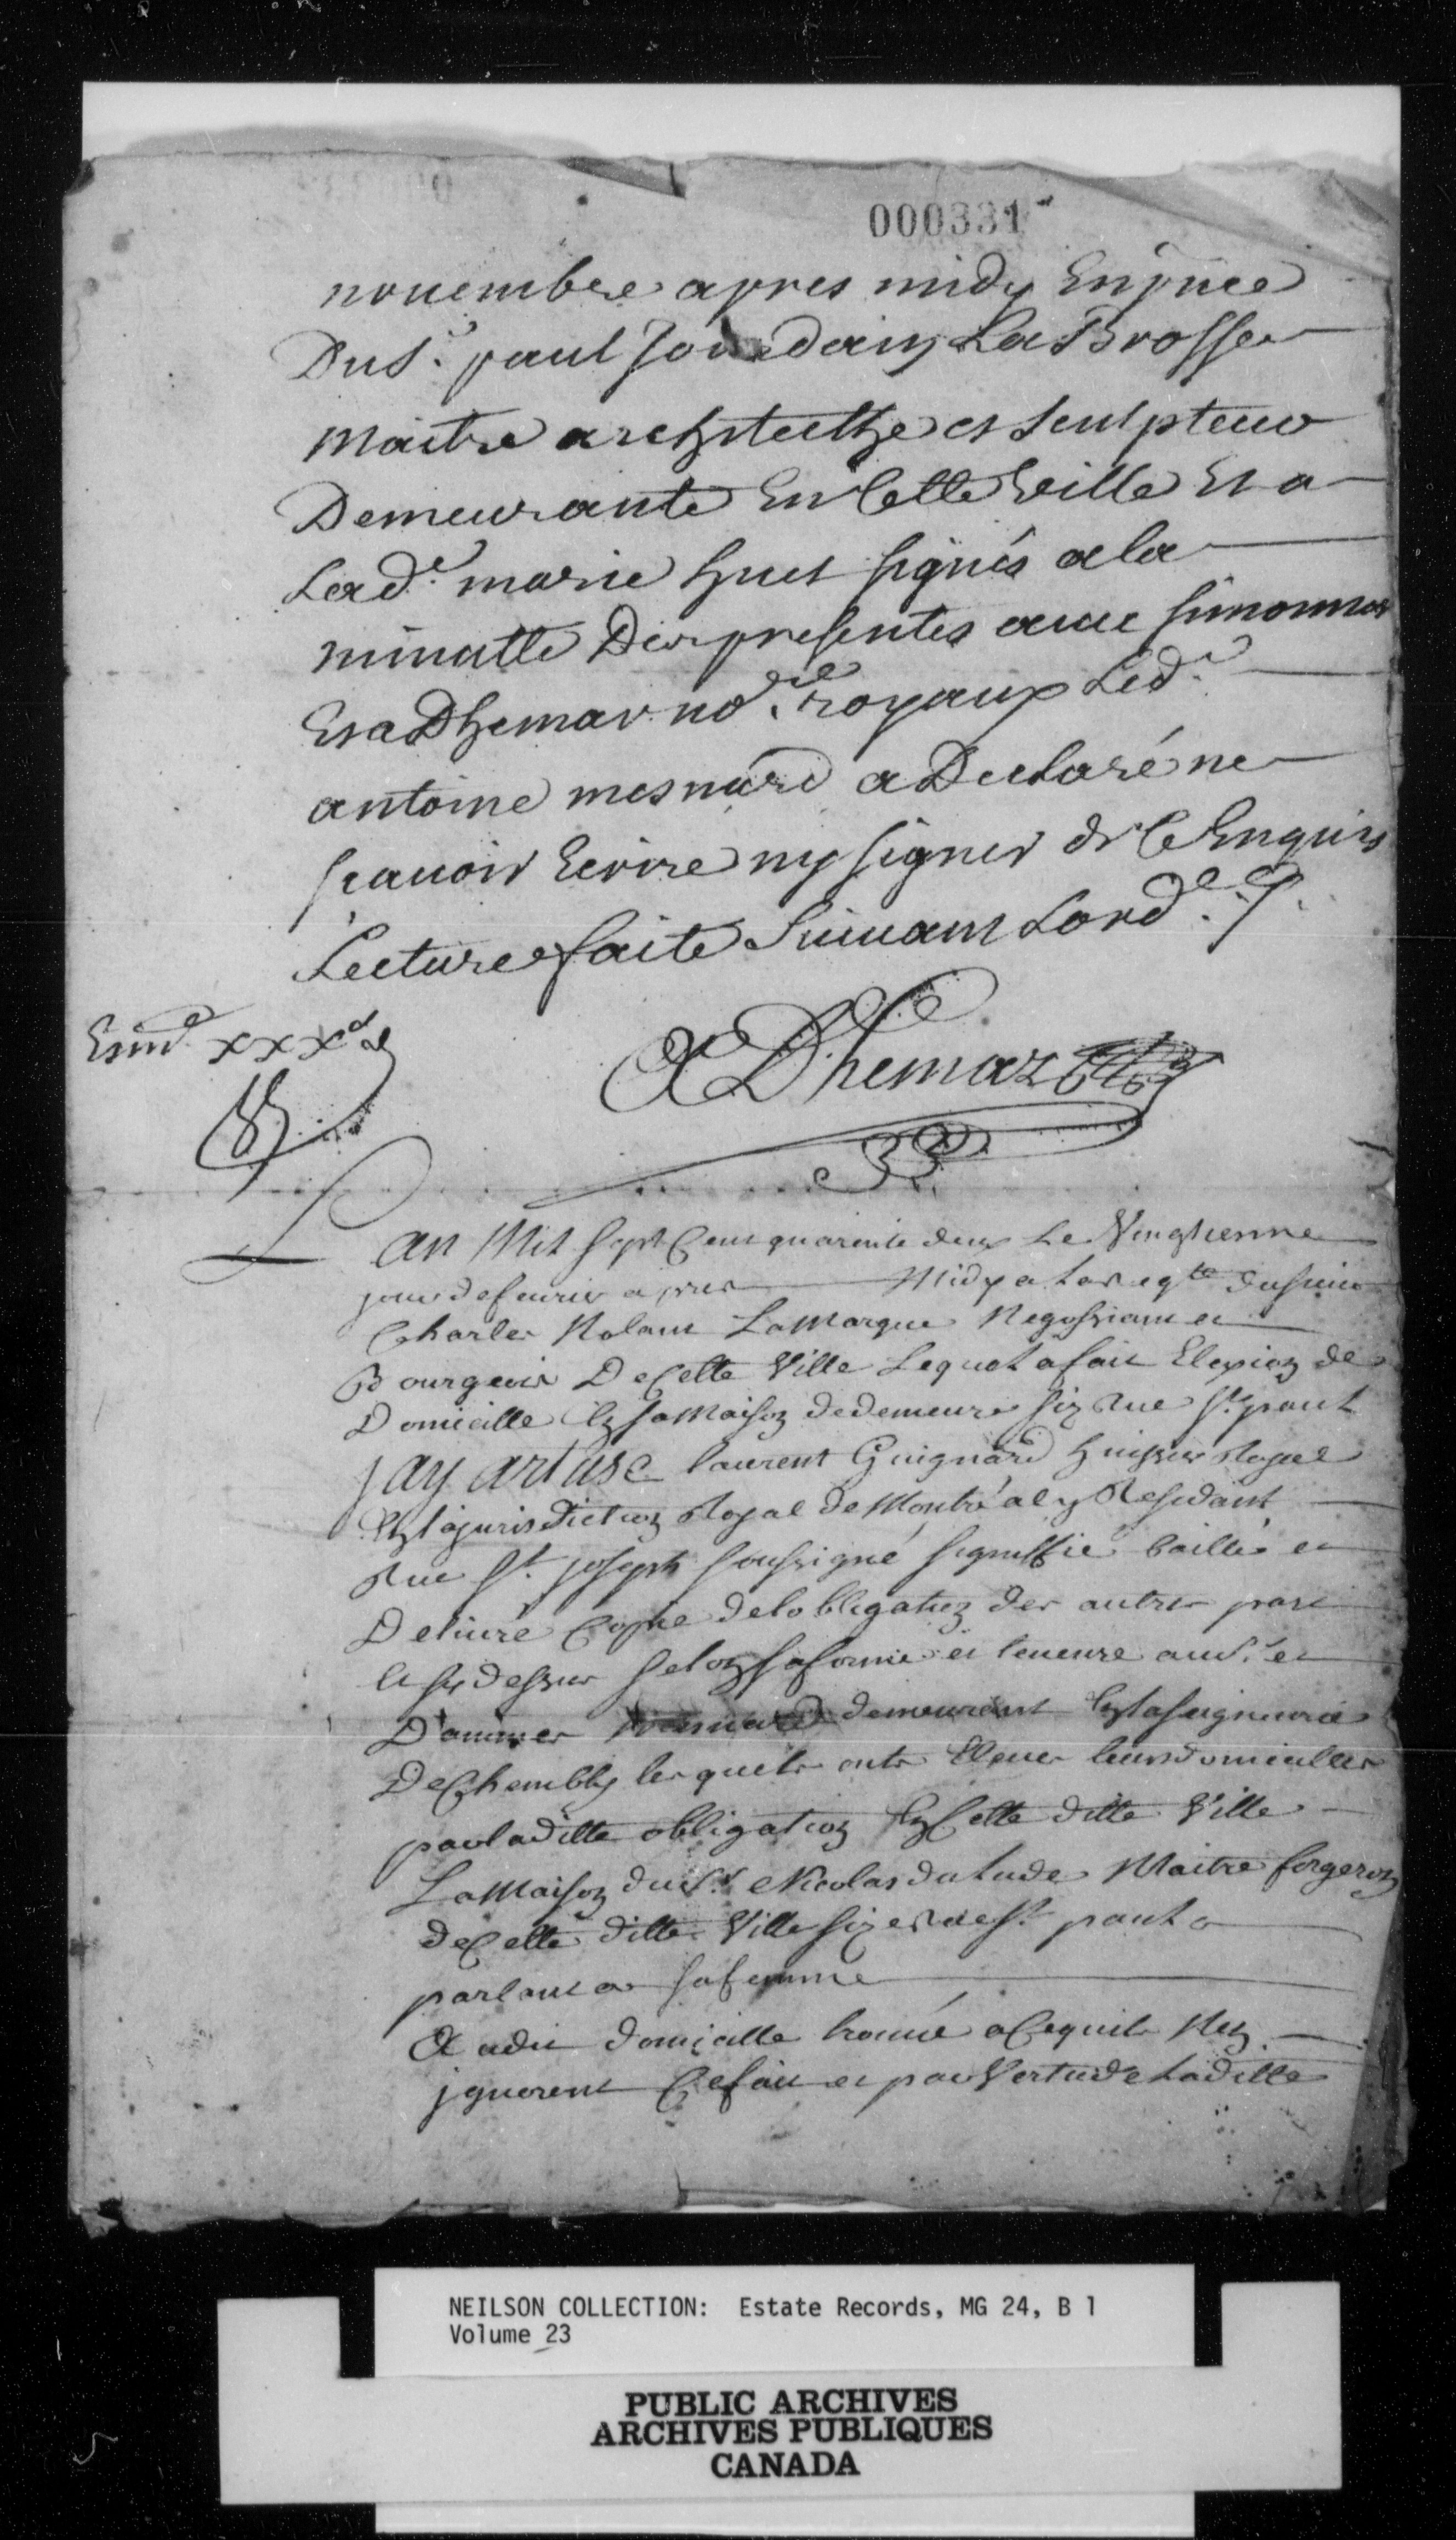 000331
nouembre apres midy En pñce
Du Sr. paul Jourdain LaBrosse
maitre architecthe et sculpteur
Demeurante En Cette Ville Et a
Lade. marie huet signés a la
minutte Des presentes auec simonnet
Et aDhemar nores. royaux Led.
antoine mesnard a Declaré ne
scauoir Ecrire ny signer de Ce Enquis
Lecture faite Suiuant Lorde. /.
ADhemar
xxx s
Lan Mil sept Cent quarente deux Le Vingtiesme
jour de feurier apres Midy a La reqte du sieur
Charles Nolant LaMarque Negossiant et
Bourgeois De Cette Ville Lequel a fait Elexion de
Domicille En sa Maison de demeure size Rue St. paul
jay artuse laurent Guignard huissier Royal
En la jurisdiction Royal de Montréal y Residant
Rue St. joseph soussigné signiffié baillé et
Deliuré Copie de lobligation des autres part
et sy dessus selon sa forme et teneure au Sr. et
D'ammes mesnard demeurant En la seigneurie
De Chambly lesquels onts Elenes leurs domicilles
par laditte obligation En Cette ditte Ville
La Maison du Sr. Nicolas da Lude Maitre forgeron
de Cette ditte Ville size rue St. paul a
parlant a sa femme
A audit domicille trouué a Cequils Nen
jgnorent Ce fait et par Vertu de Laditte
NEILSON COLLECTION: Estate Records, MG 24, B 1
Volume 23
PUBLIC ARCHIVES
ARCHIVES PUBLIQUES
CANADA